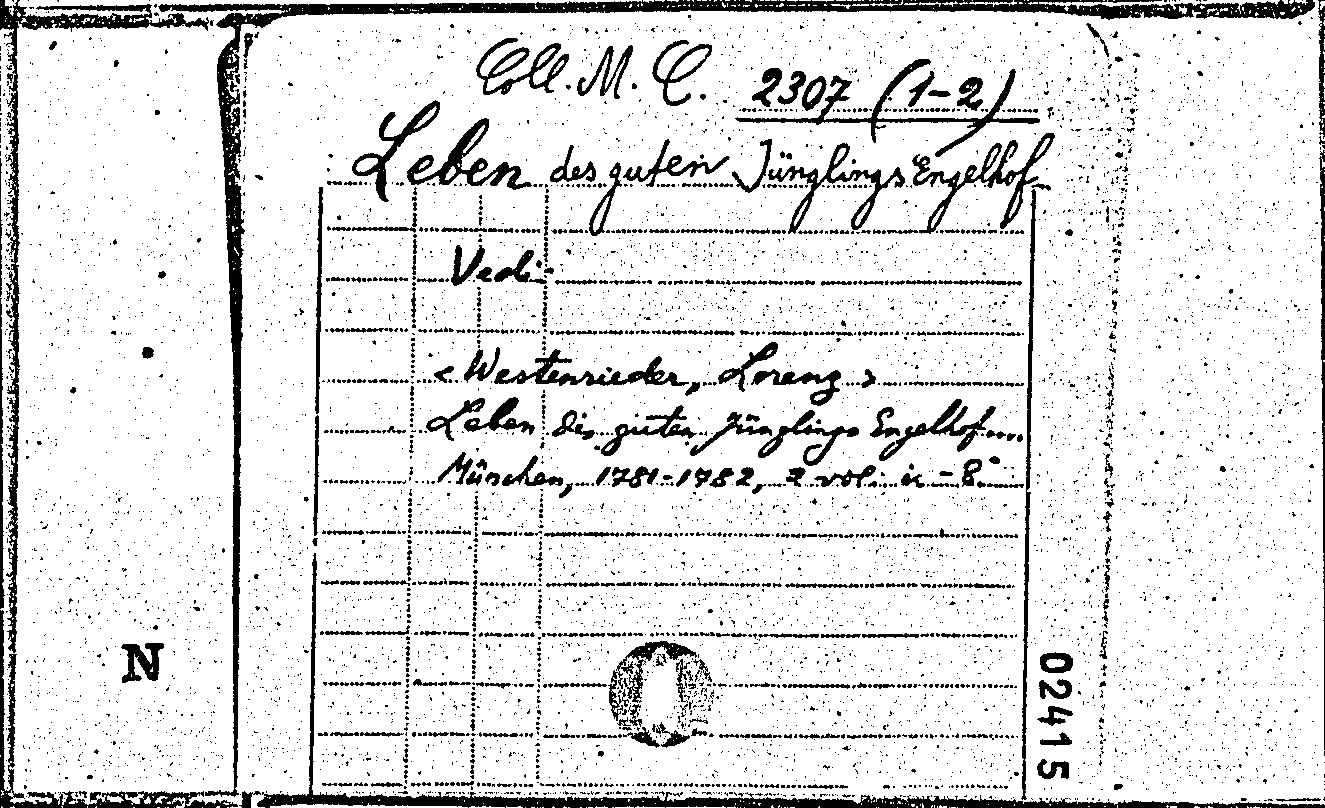 Coll. M. C. 2307 (1-2)
Leben des guten Jünglings Engelhof
Vedi:
<Westenrieder, Lorenz>
Leben des guten Jünglings Engelhof....
München, 1781-1782, 2 vol. in-8°
N
02415